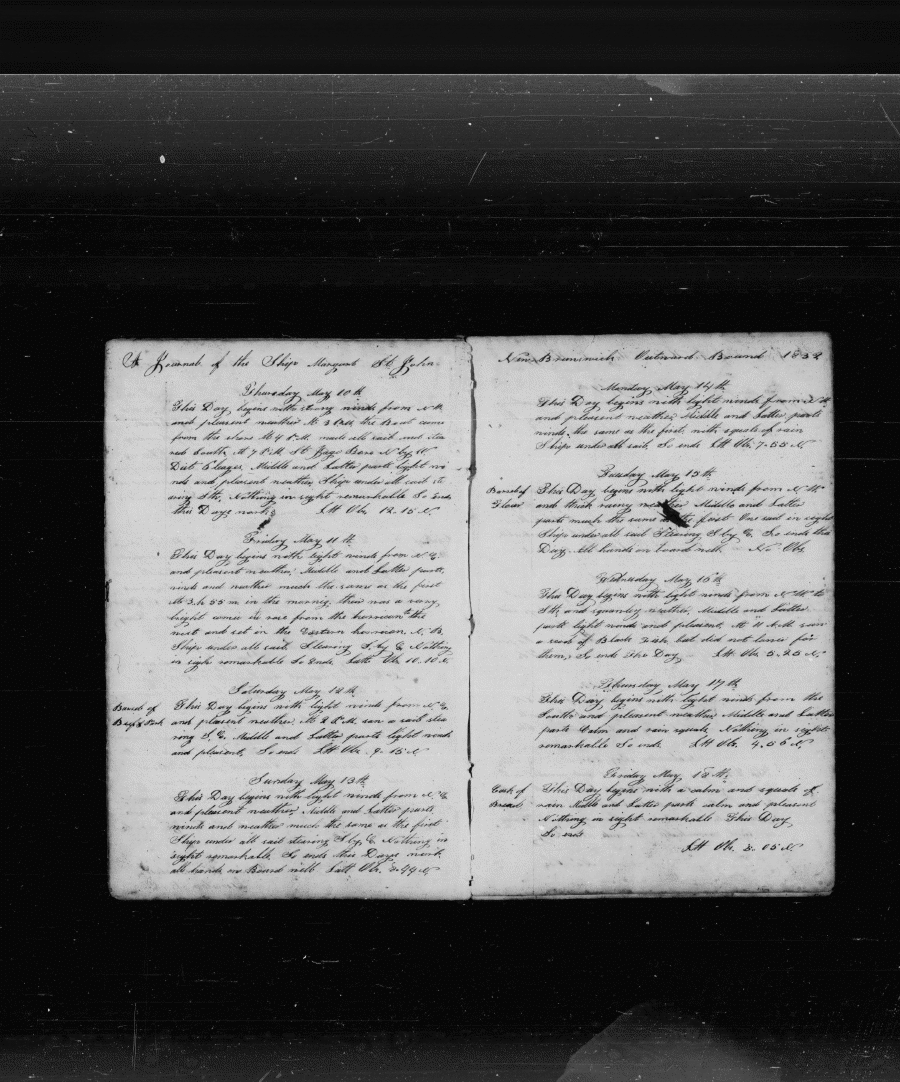 A Journal of the Ship Margaret St. John
Thursday May 10th
This Day begins with strong winds from N E
and pleasant weather At 3 the Boat came
from the shore At 4 P.M. made all sail and stea
red South At 7 P.M. St. Jago Bore N by W
Dist 5 leags. Middle and Latter parts light wi
nds and pleasant weather, Ships under all sail ste
ering Nothing in sight remarkable So Ends
this Days works Lat Ob. 12.15 N
Friday May 11th
This Day begins with light winds from N E
and pleasant weather, Middle and Latter parts,
winds and weather much the same as the first
At 3.h 55 m in the morning there was a very
bright comet in rose from the horrison to the
west and set in the Eastern horrison
Ships under all sail Stearing S by E Nothing
in sigh remarkable So Ends, Latt Ob. 10.10 N.
Saturday May 12th
Barrel of
Beef & Pork
This Day begins with light winds from N E
and pleasant weather, At 2 P.M. saw a sail stea
ring S, E, Middle and Latter parts light winds
and pleasant, So ends Latt Ob. 9.15 N
Sunday May 13th
This Day begins with light winds from N E
and pleasant weather, Middle and Latter parts,
winds and weather much the same as the first
Ships under all sail stearing S by E Nothing in
sight remarkable So ends this Days work
all hands on Board well Latt Ob.
New Brunswick Outward Bound 1832
Monday May 14th
This Day begins with light winds from
and pleasant weather, Middle and Latter parts
winds the same as the first, with squals of rain
Ships under all sail, So ends Latt Ob. 7.55 N
Tuesday May 15th
Barrel of
Flour
This Day begins with light winds from
and thick rainy weather Middle and Latter
parts much the same as the first One sail in sight
Ship under all sail Stearing S by E, So ends this
Day All hands on board well No Ob.
Wednesday May 16th
This Day begins with light winds from to
and squanley weather, Middle and Latter
parts light winds and pleasant, At 11 A.M. saw
a scool of Black Fish, but did not lower for
them, So ends This Day Latt Ob. 5.25 N
Thursday May 17th
This Day begins with light winds from the
South and pleasant weather Middle and Latter
parts Calm and rain squals, Nothing in sight
remarkable So ends Latt Ob. 4.56 N
Friday May, 18th,
Cask of
Bread
This Day begins with a calm and squals of
rain Middle and Latter parts calm and pleasant
Nothing in sight remarkable This Day
So ends
Latt Ob. 3.05 N